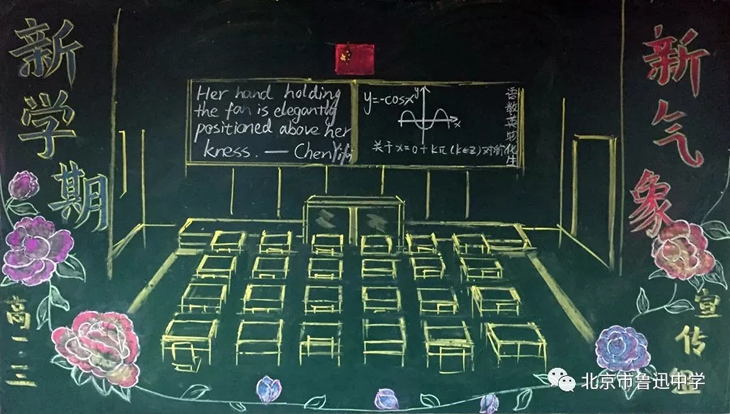 新学期
新气象
Her hand holding
the fan is elegantly
positioned above her
kness. — ChenYifi
y=-cosx
y
x
关于x=0+kπ(k∈Z)对称
语数英物化生
高一·三
宣传组
北京市鲁迅中学